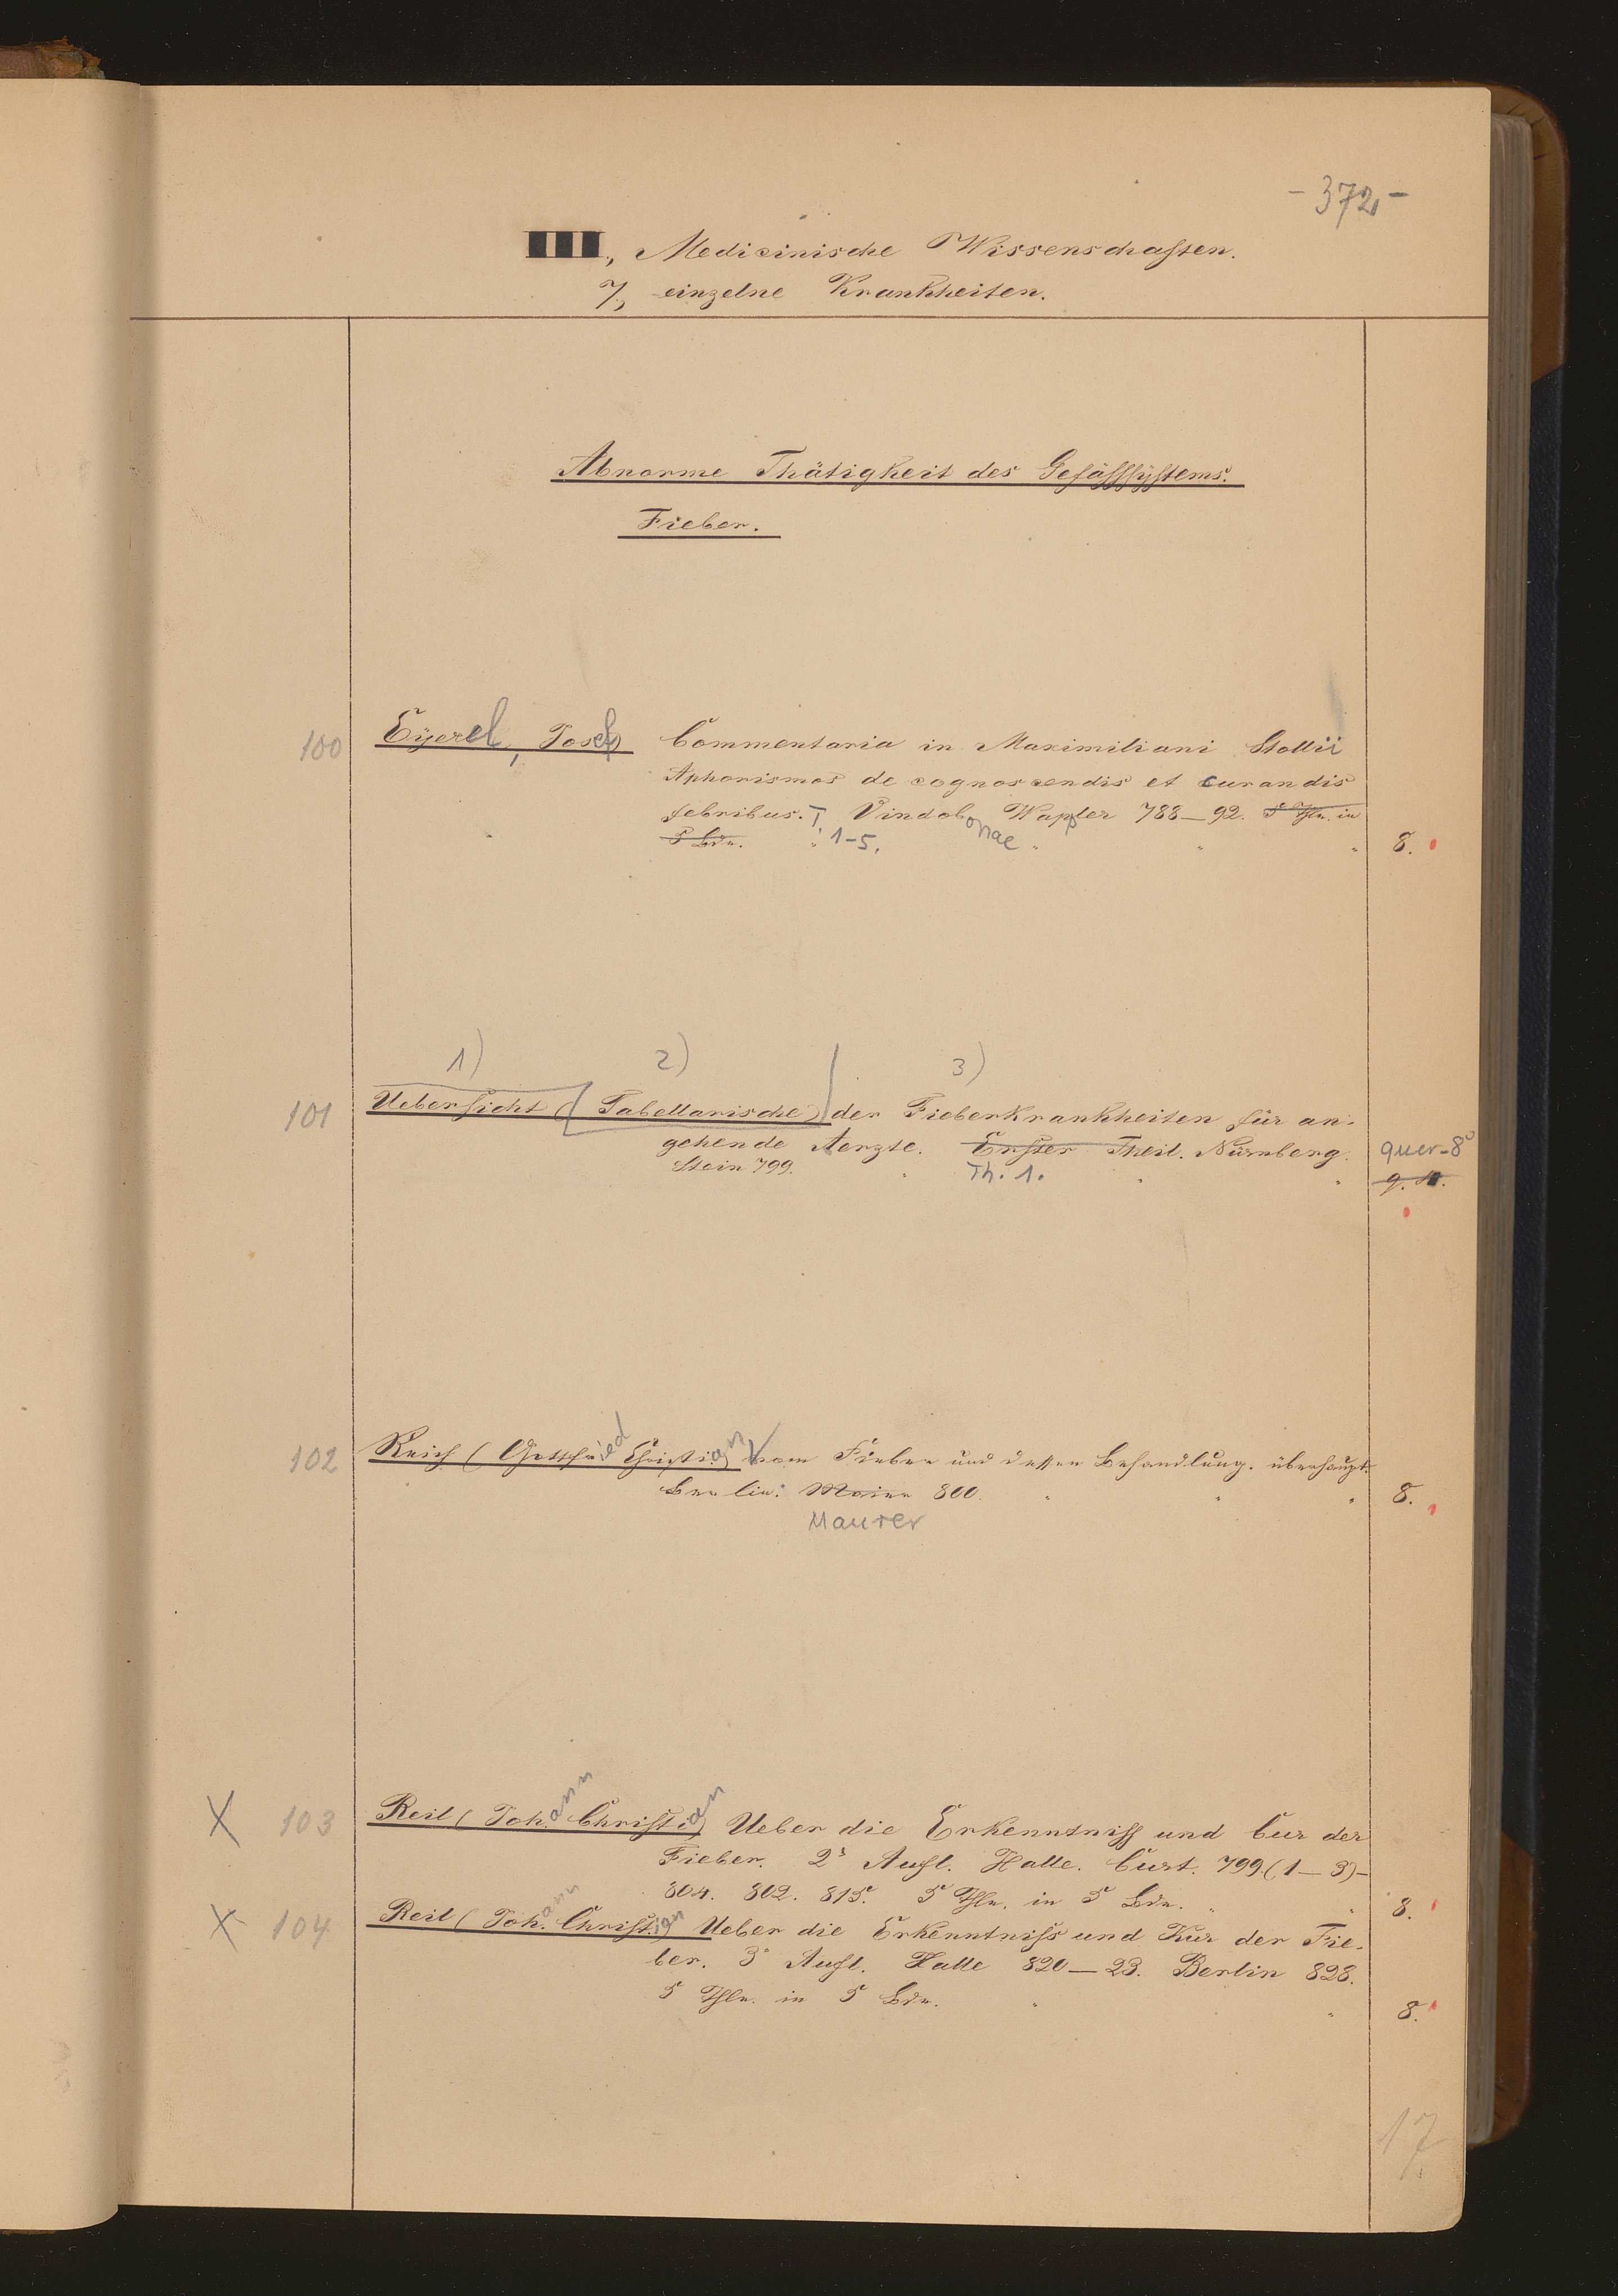 - 372 -
III, Medicinische Wissenschaften.
7, einzelne Krankheiten.
Abnorme Thätigkeit des Gefäßsÿstems.
Fieber.
100 Eÿerel, Josef Commentaria in Maximiliani Stollii
Aphorismos de cognoscendis et curandis
febribus. T. Vindobonae Wappler 788–92. 5 Thle. in
5 Bdn. 1-5. 8.
1) 2) 3)
101 Uebersicht (Tabellarische) der Fieberkrankheiten für an-
gehende Aerzte. Erster Theil. Nürnberg. quer-8°
Stein 799. Th. 1. q. 4.
102 Reich (Gottfried Christian) vom Fieber und dessen Behandlung. überhaupt.
Berlin: Maier 800. 8.
Maurer
X 103 Reil (Johann Christian) Ueber die Erkenntniß und Cur der
Fieber. 2e Aufl. Halle. Curt. 799 (1–3)–
804. 802. 815. 5 Thle. in 5 Bdn. 8.
X 104 Reil (Johann Christian) Ueber die Erkenntniß und Kur der Fie-
ber. 3e Aufl. Halle 820–23. Berlin 828.
5 Thle. in 5 Bdn. 8.
17